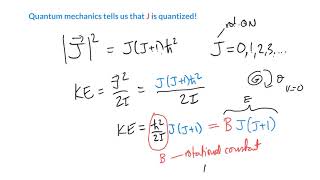 Quantum mechanics tells us that J is quantized!
|J⃗|² = J(J+1)ħ² J = 0,1,2,3,...
rot. QN
KE = J²/2I = J(J+1)ħ²/2I
v=0
E
KE = ħ²/2I J(J+1) = B J(J+1)
B — rotational constant